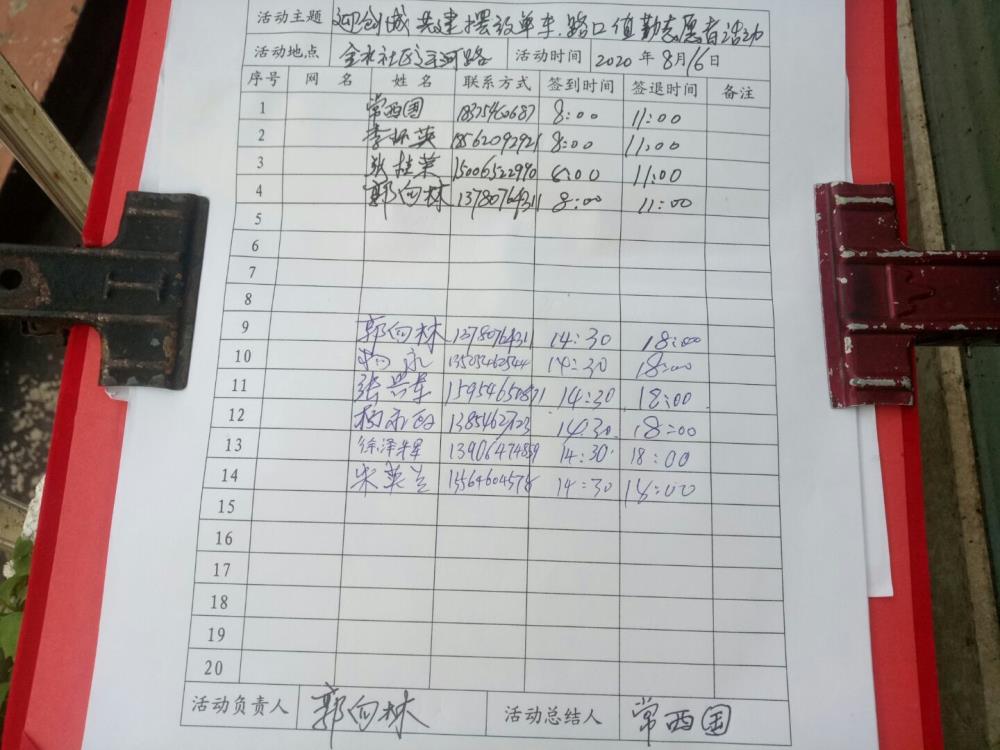 活动主题 迎创城 共建摆放单车.路口值勤志愿者活动
活动地点 金水社区 河路 活动时间 2020年8月16日
序号 网名 姓名 联系方式 签到时间 签退时间 备注
1 常西国 18325460687 8:00 11:00
2 李怀英 18562092921 8:00 11:00
3 张桂荣 15006522990 8:00 11:00
4 郭向林 13780764311 8:00 11:00
5
6
7
8
9 郭向林 13780764311 14:30 18:00
10 永 13505462544 14:30 18:00
11 张兴军 15954650871 14:30 18:00
12 杨 14.30 18:00
13 徐泽军 13906474859 14:30 18:00
14 宋英兰 15564604578 14:30 18:00
15
16
17
18
19
20
活动负责人 郭向林 活动总结人 常西国